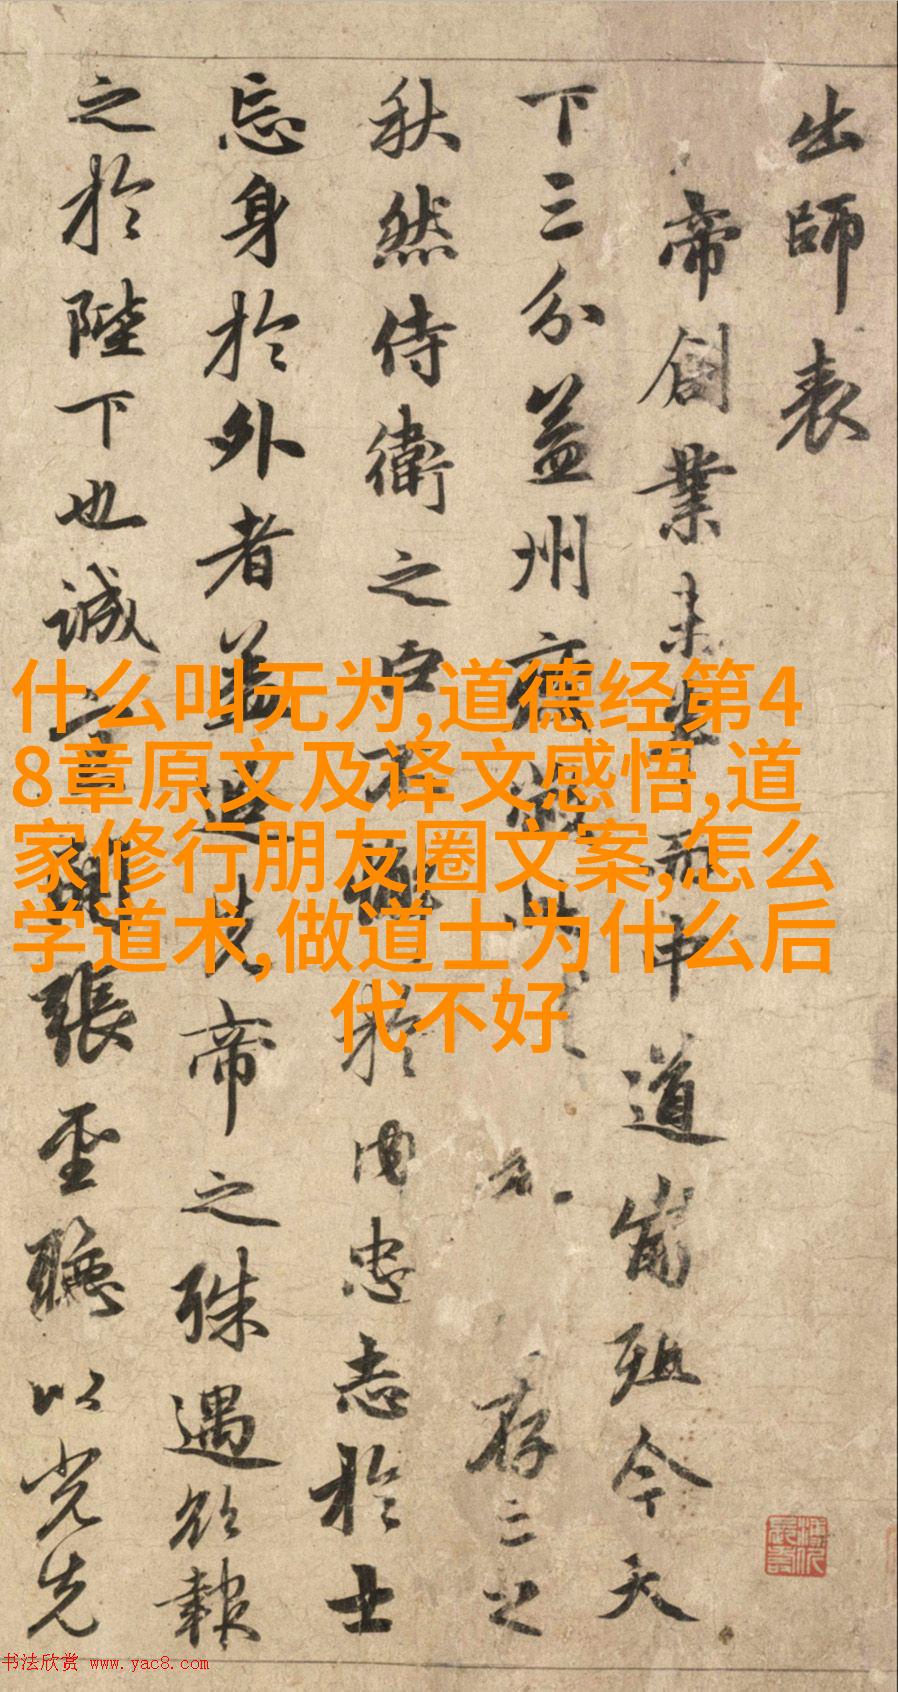 出師表
帝創業未半而中道崩殂今天
下三分益州疲 存亡之
秋然侍衛之臣不懈於内忠志於士
忘身於外者蓋追先帝之殊遇欲報
之於陛下也誠宜開張聖聽以光先
什么叫无为,道德经第4
8章原文及译文感悟,道
家修行朋友圈文案,怎么
学道术,做道士为什么后
代不好
书法欣赏 www.yac8.com